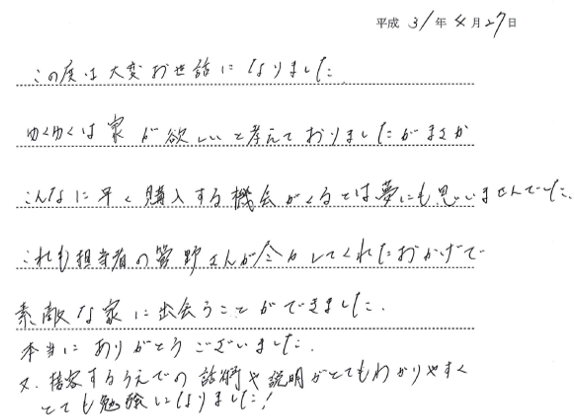 平成31年4月27日
この度は大変お世話になりました
ゆくゆくは家が欲しいと考えておりましたがまさか
こんなに早く購入する機会がくるとは夢にも思いませんでした、
これも担当者の菅野さんが尽力してくれたおかげで
素敵な家に出会うことができました.
本当にありがとうございました.
又、接客するうえでの話術や説明がとてもわかりやすく
とても勉強になりました!